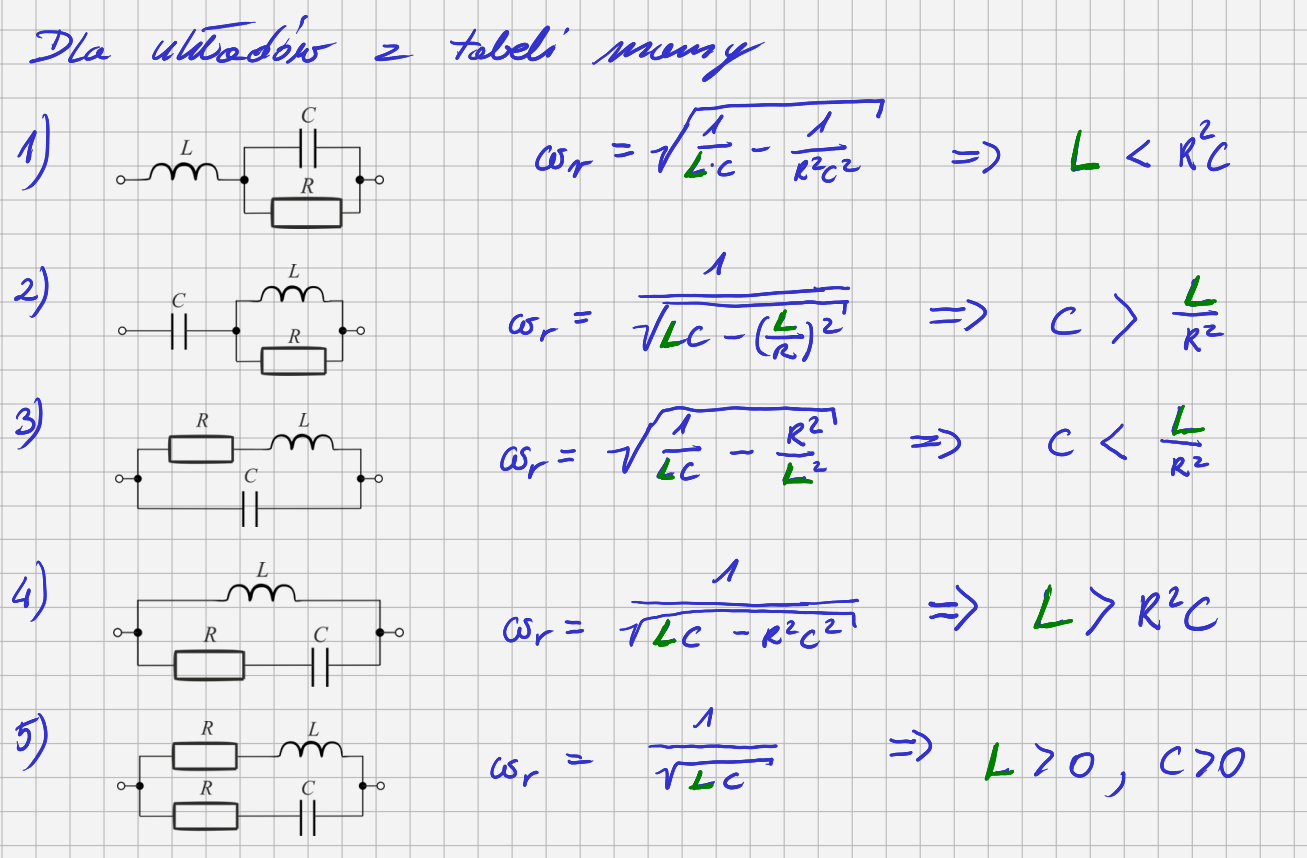 Dla układów z tabeli mamy
1) L C R ω_r = √(1/(L·C) - 1/(R²C²)) => L < R²C
2) C L R ω_r = 1/√(LC - (L/R)²) => C > L/R²
3) R L C ω_r = √(1/(LC) - R²/L²) => C < L/R²
4) L R C ω_r = 1/√(LC - R²C²) => L > R²C
5) R L R C ω_r = 1/√(LC) => L > 0, C > 0